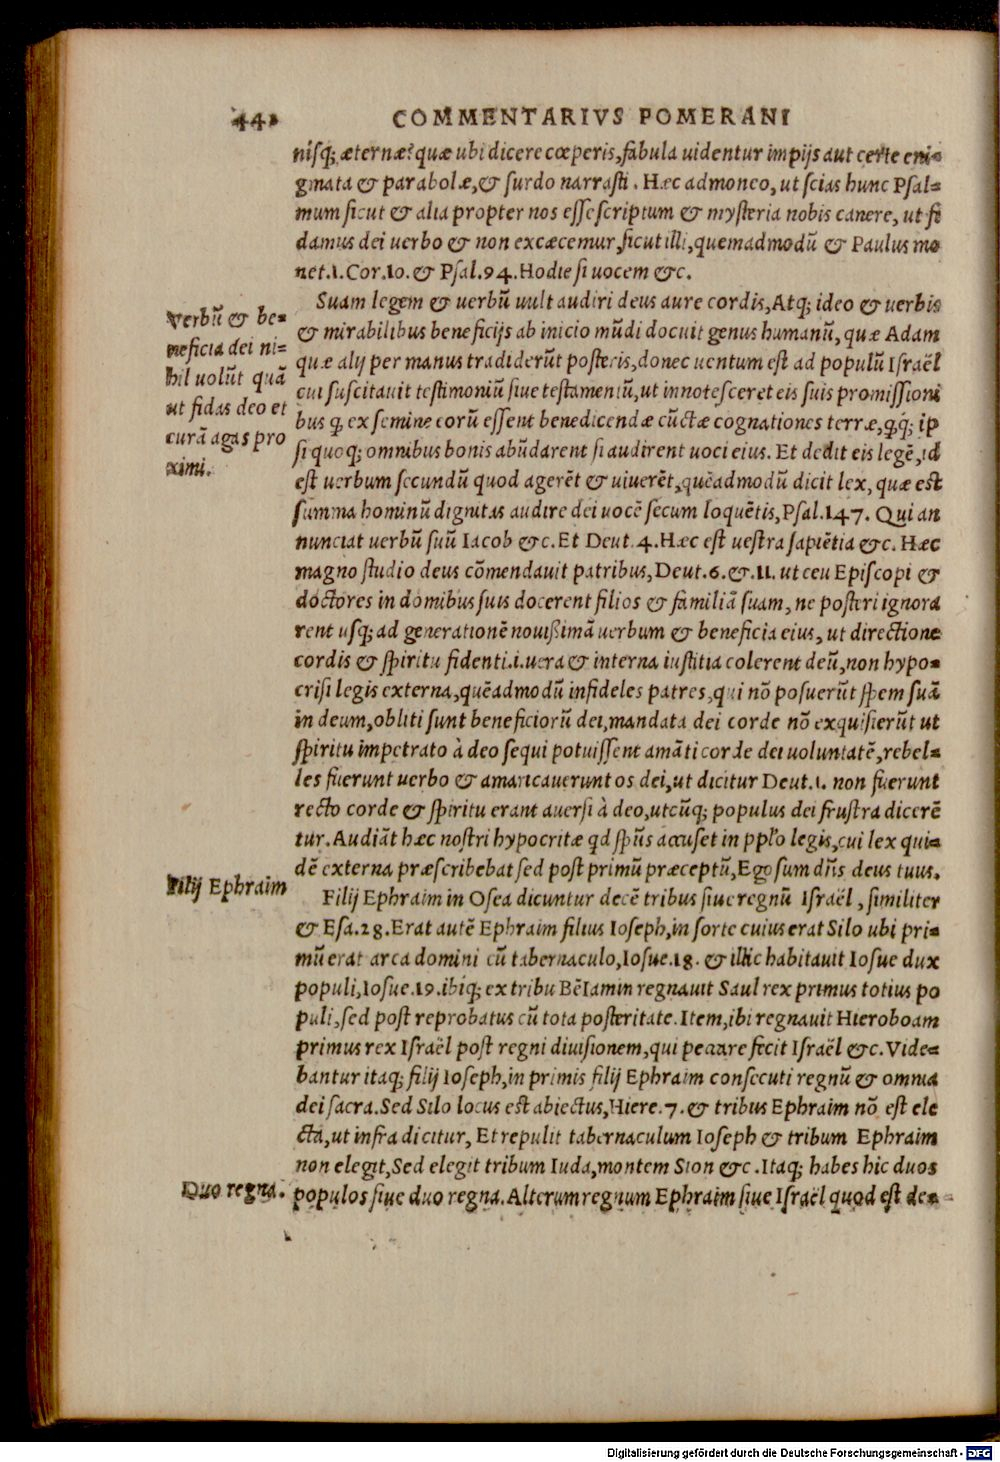 442 COMMENTARIVS POMERANI
nisq; æternæ? quæ ubi dicere cœperis, fabula uidentur impijs aut certe eni-
gmata & parabolæ, & surdo narrasti. Hæc admoneo, ut scias hunc Psal-
mum sicut & alia propter nos esse scriptum & mysteria nobis canere, ut fi
damus dei uerbo & non excæcemur, sicut illi, quemadmodū & Paulus mo
net. 1. Cor. 10. & Psal. 94. Hodie si uocem &c.
Suam legem & uerbū uult audiri deus aure cordis, Atq; ideo & uerbis
& mirabilibus beneficijs ab inicio mūdi docuit genus humanū, quæ Adam
quæ alij per manus tradiderūt posteris, donec uentum est ad populū Israël
cui suscitauit testimoniū siue testamentū, ut innotesceret eis suis promissioni
bus q ex semine eorū essent benedicendæ cūctæ cognationes terræ, q q; ip
si quoq; omnibus bonis abūdarent si audirent uoci eius. Et dedit eis legē, id
est uerbum secundū quod agerēt & uiuerēt, quēadmodū dicit lex, quæ est
summa hominū dignitas audire dei uocē secum loquētis, Psal. 147. Qui an
nunciat uerbū suū Iacob &c. Et Deut. 4. Hæc est uestra sapiētia &c. Hæc
magno studio deus cōmendauit patribus, Deut. 6. & 11. ut ceu Episcopi &
doctores in domibus suis docerent filios & familiā suam, ne posteri ignora
rent usq; ad generationē nouißimā uerbum & beneficia eius, ut directione
cordis & spiritu fidenti .i. uera & interna iustitia colerent deū, non hypo-
crisi legis externa, quēadmodū infideles patres, qui nō posuerūt spem suā
in deum, obliti sunt beneficiorū dei, mandata dei corde nō exquisierūt ut
spiritu impetrato à deo sequi potuissent amāti corde dei uoluntatē, rebel-
les fuerunt uerbo & amaricauerunt os dei, ut dicitur Deut. 1. non fuerunt
recto corde & spiritu erant auersi à deo, utcūq; populus dei frustra dicerē
tur. Audiāt hæc nostri hypocritæ qd sp̄us accuset in ppľo legis, cui lex qui-
dē externa præscribebat sed post primū præceptū, Ego sum dn̄s deus tuus.
Filij Ephraim in Osea dicuntur decē tribus siue regnū Israël, similiter
& Esa. 28. Erat autē Ephraim filius Ioseph, in sorte cuius erat Silo ubi pri-
mū erat arca domini cū tabernaculo, Iosue. 18. & illic habitauit Iosue dux
populi, Iosue. 19. ibiq; ex tribu BēIamin regnauit Saul rex primus totius po
puli, sed post reprobatus cū tota posteritate. Item, ibi regnauit Hieroboam
primus rex Israël post regni diuisionem, qui peccare fecit Israël &c. Vide-
bantur itaq; filij Ioseph, in primis filij Ephraim consecuti regnū & omnia
dei sacra. Sed Silo locus est abiectus, Hiere. 7. & tribus Ephraim nō est ele
cta, ut infra dicitur, Et repulit tabernaculum Ioseph & tribum Ephraim
non elegit, Sed elegit tribum Iuda, montem Sion &c. Itaq; habes hic duos
populos siue duo regna. Alterum regnum Ephraim siue Israël quod est de-
Verbū & be-
neficia dei ni-
hil uolūt quā
ut fidas deo et
curā agas pro
ximi.
Filij Ephraim
Duo regna.
Digitalisierung gefördert durch die Deutsche Forschungsgemeinschaft - DFG